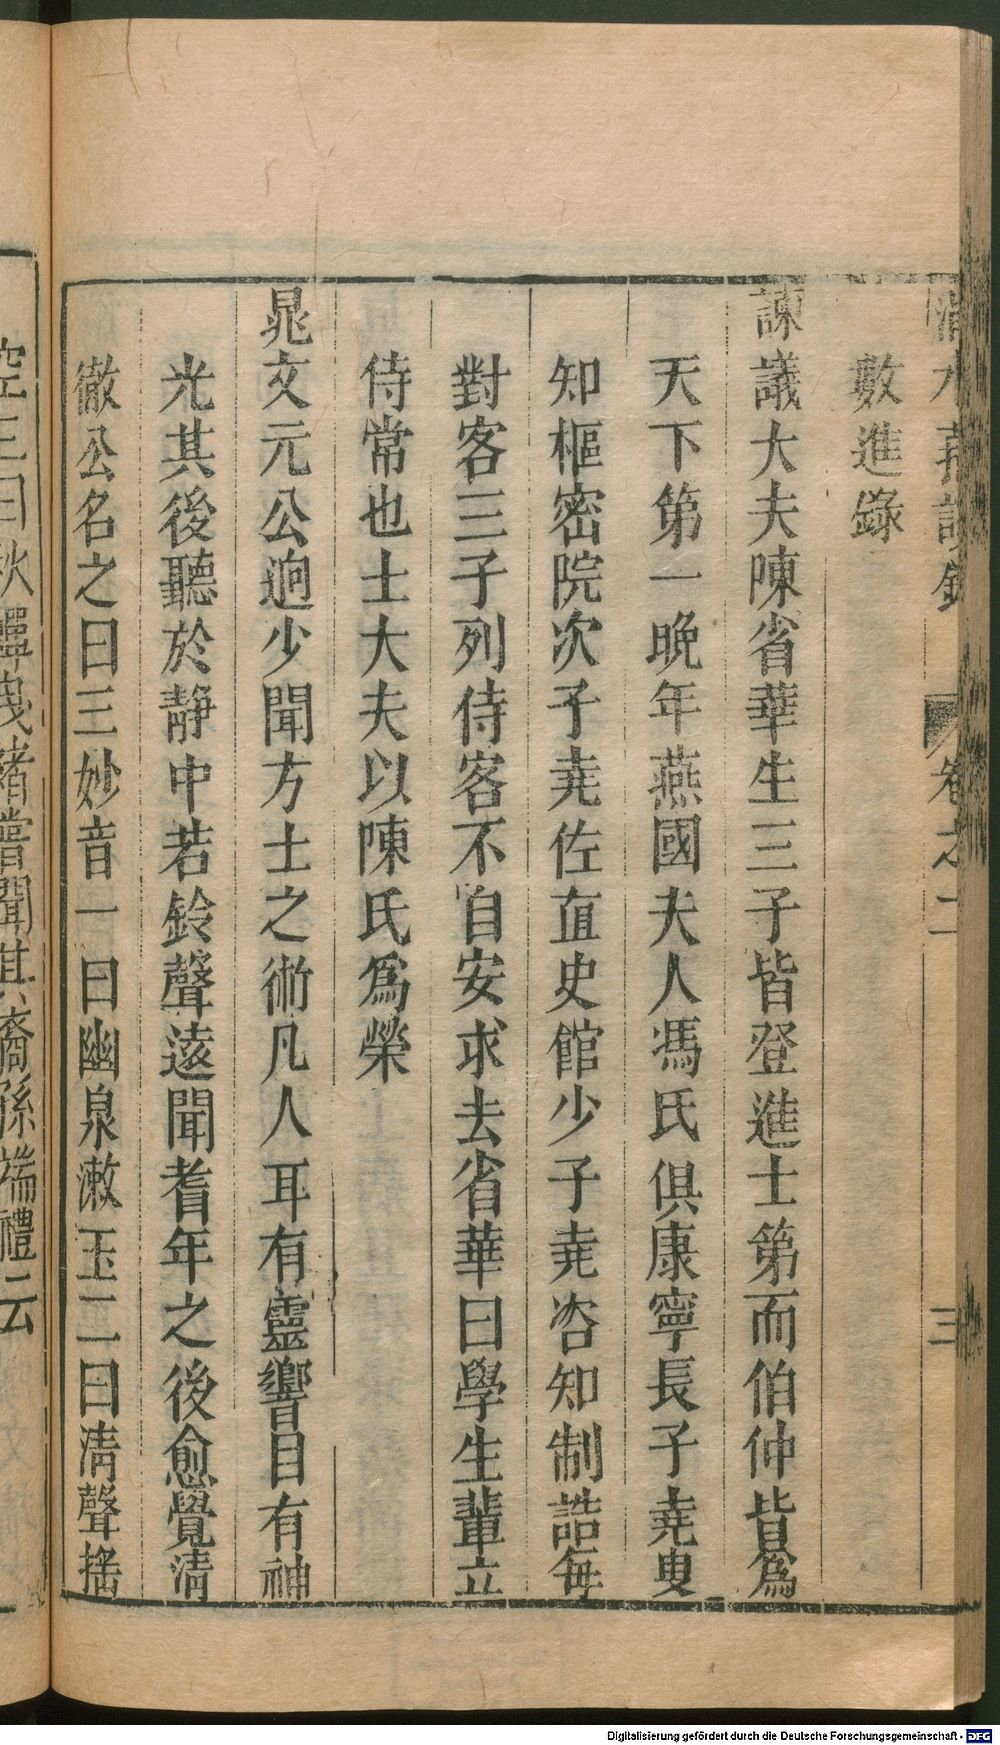 澠水燕談錄 卷之二 三
數進錄
諫議大夫陳省華生三子皆登進士第而伯仲皆爲
天下第一晩年燕國夫人馮氏俱康寧長子堯叟
知樞密院次子堯佐直史館少子堯咨知制誥每
對客三子列侍客不自安求去省華曰學生輩立
侍常也士大夫以陳氏爲榮
晁文元公迥少聞方士之術凡人耳有靈響目有神
光其後聽於靜中若鈴聲遠聞耆年之後愈覺清
徹公名之曰三妙音一曰幽泉漱玉二曰清聲搖
空三曰秋蟬曳緒嘗聞其裔孫端禮云
Digitalisierung gefördert durch die Deutsche Forschungsgemeinschaft - DFG